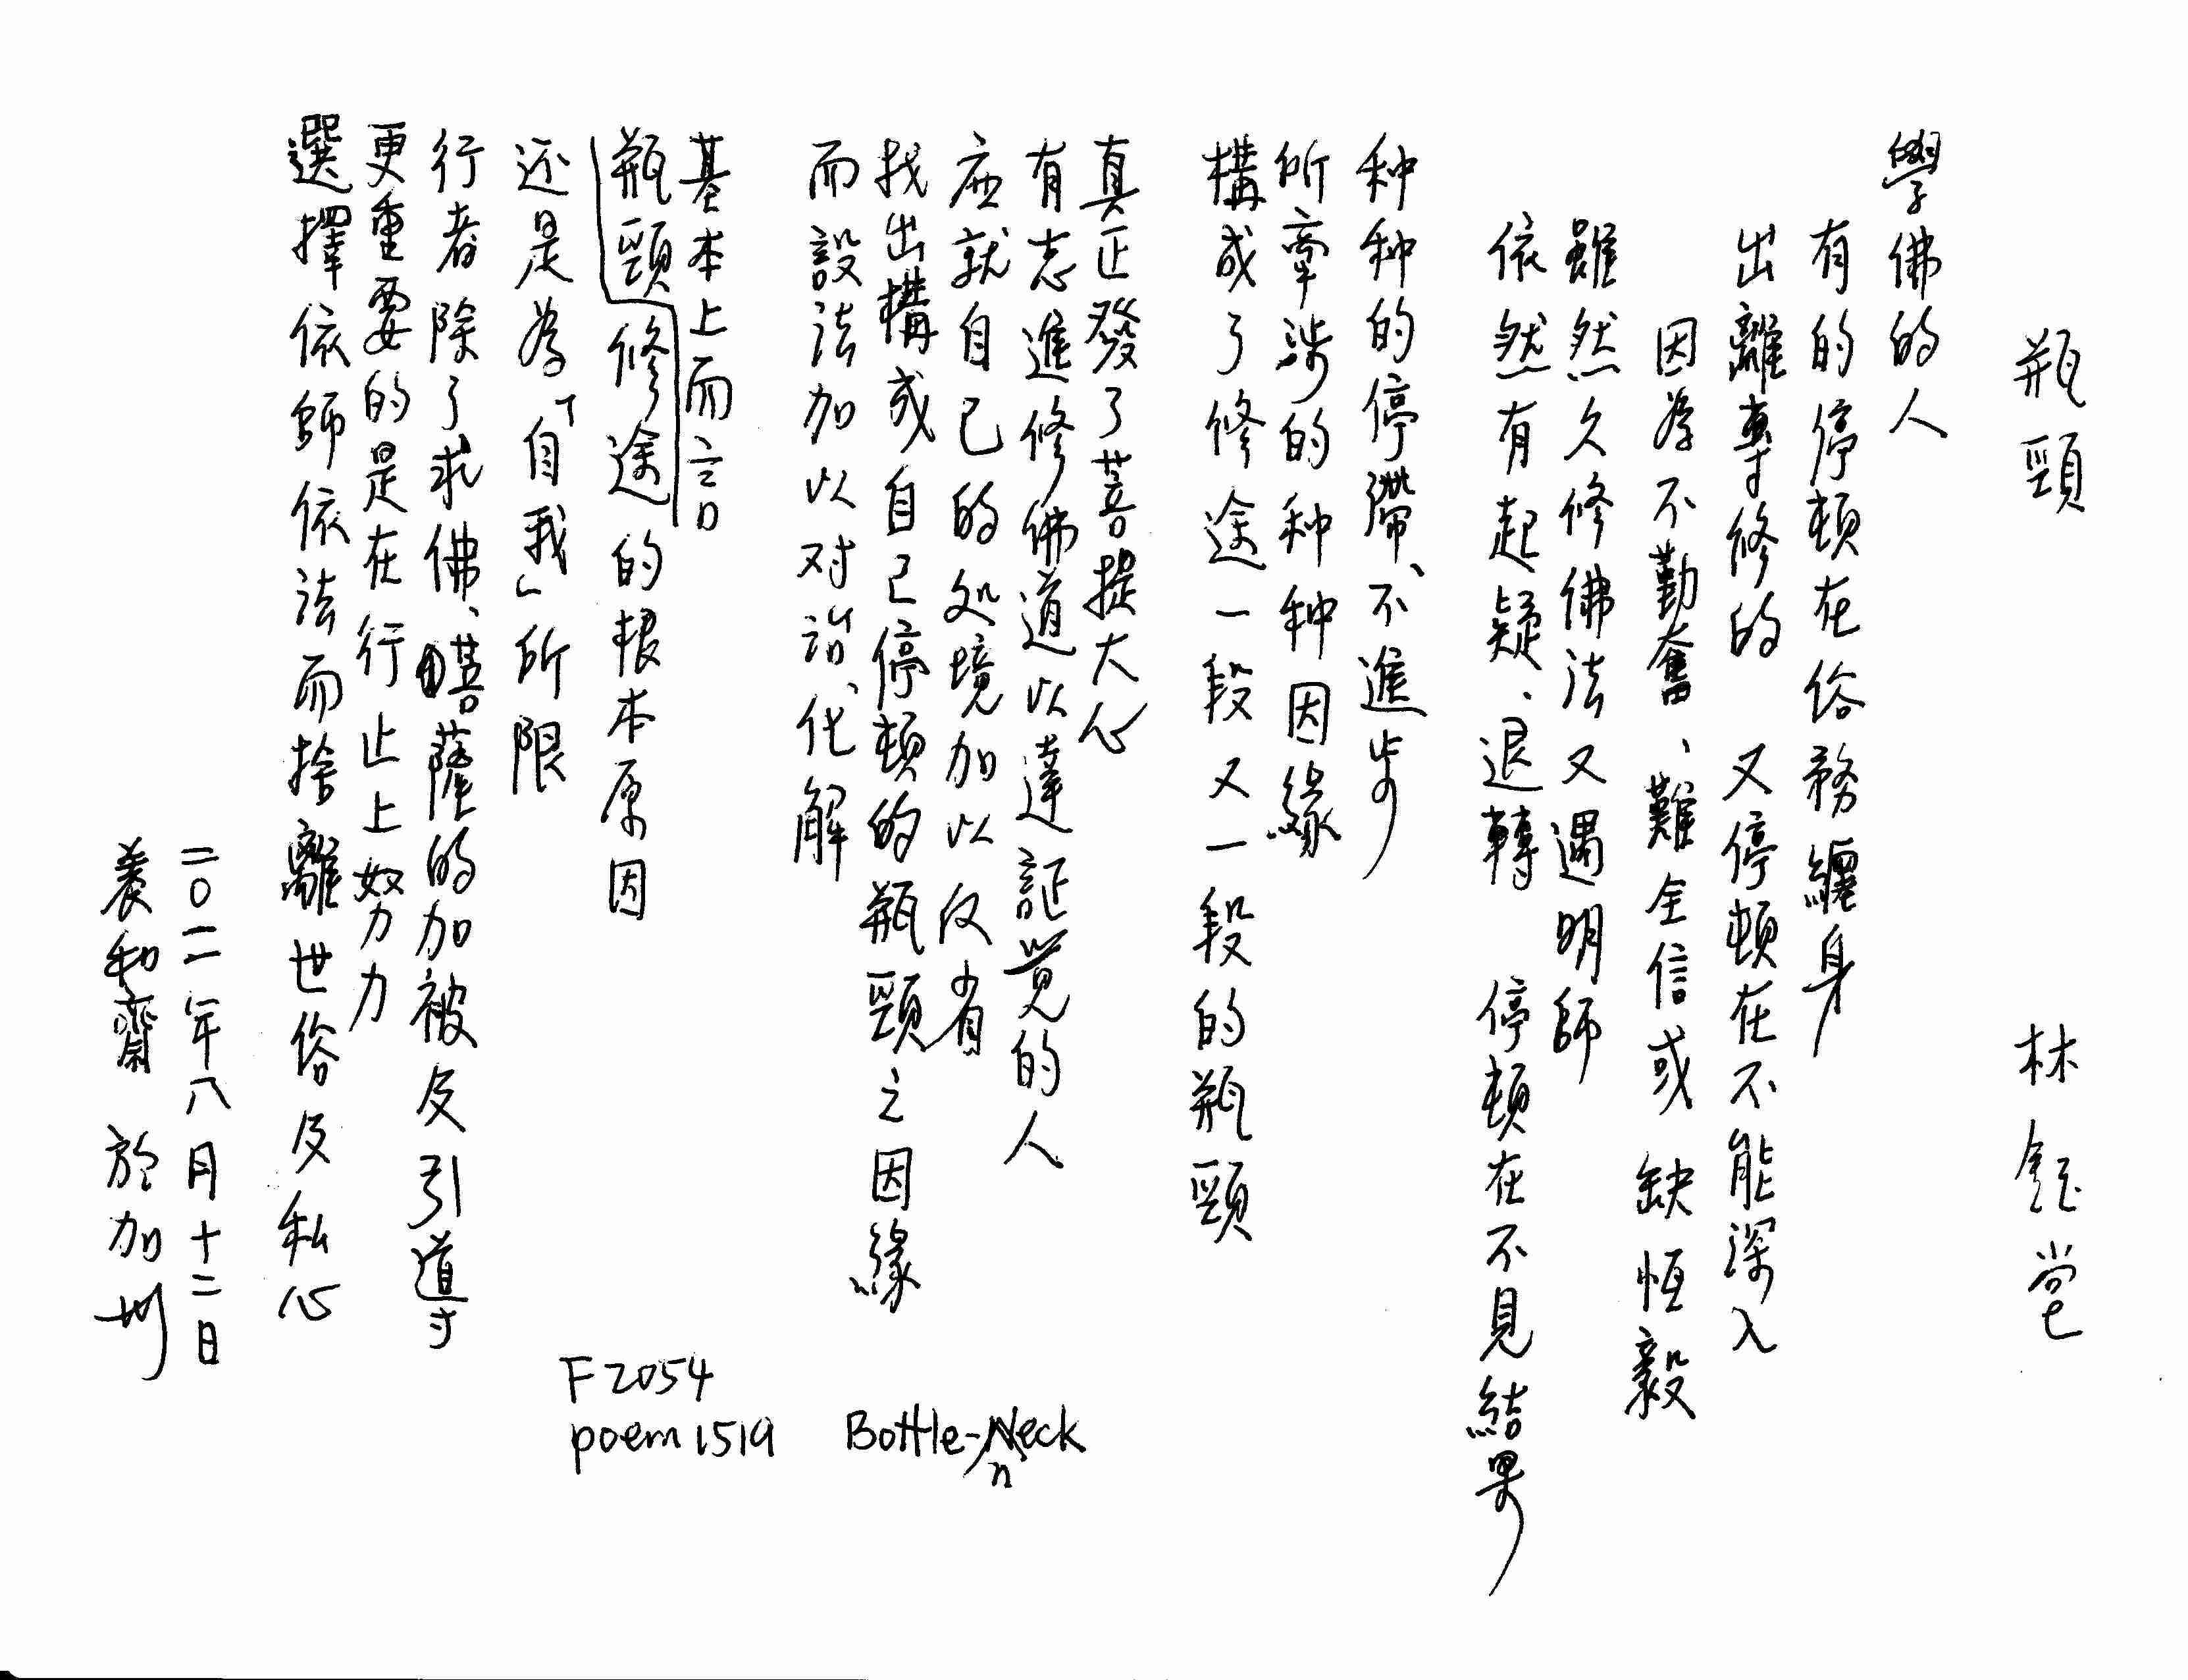 瓶頸 林鈺堂
學佛的人
有的停頓在俗務纏身
出離專修的 又停頓在不能深入
因為不勤奮、難全信或缺恒毅
雖然久修佛法又遇明師
依然有起疑、退轉 停頓在不見結果
种种的停滯、不進步
所牽涉的种种因緣
構成了修途一段又一段的瓶頸
真正發了菩提大心
有志進修佛道以達証覚的人
应就自己的処境加以反省
找出構成自己停頓的瓶頸之因緣
而設法加以对治、化解
基本上而言
瓶頸修途的根本原因
还是為「自我」所限
行者除了求佛、菩薩的加被及引導
更重要的是在行止上努力
選擇依師依法而捨離世俗及私心
二〇一一年八月十二日
養和齋 於加州
F2054
poem 1519 Bottle-neck